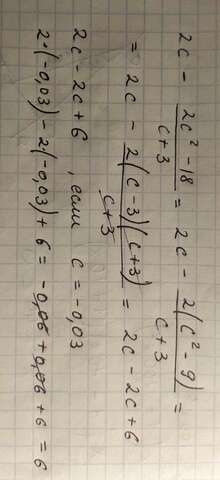 2c - \frac{2c² - 18}{c + 3} = 2c - \frac{2(c² - 9)}{c + 3} =
= 2c - \frac{2(c - 3)(c + 3)}{c + 3} = 2c - 2c + 6
2c - 2c + 6 , если c = -0,03
2·(-0,03) - 2(-0,03) + 6 = -0,06 + 0,06 + 6 = 6